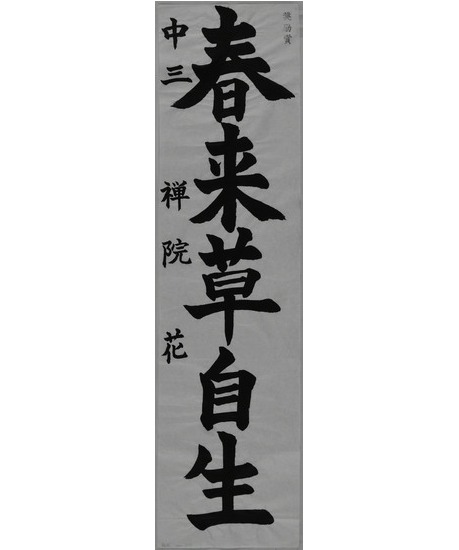 奨励賞
春来草自生
中三 禅院 花